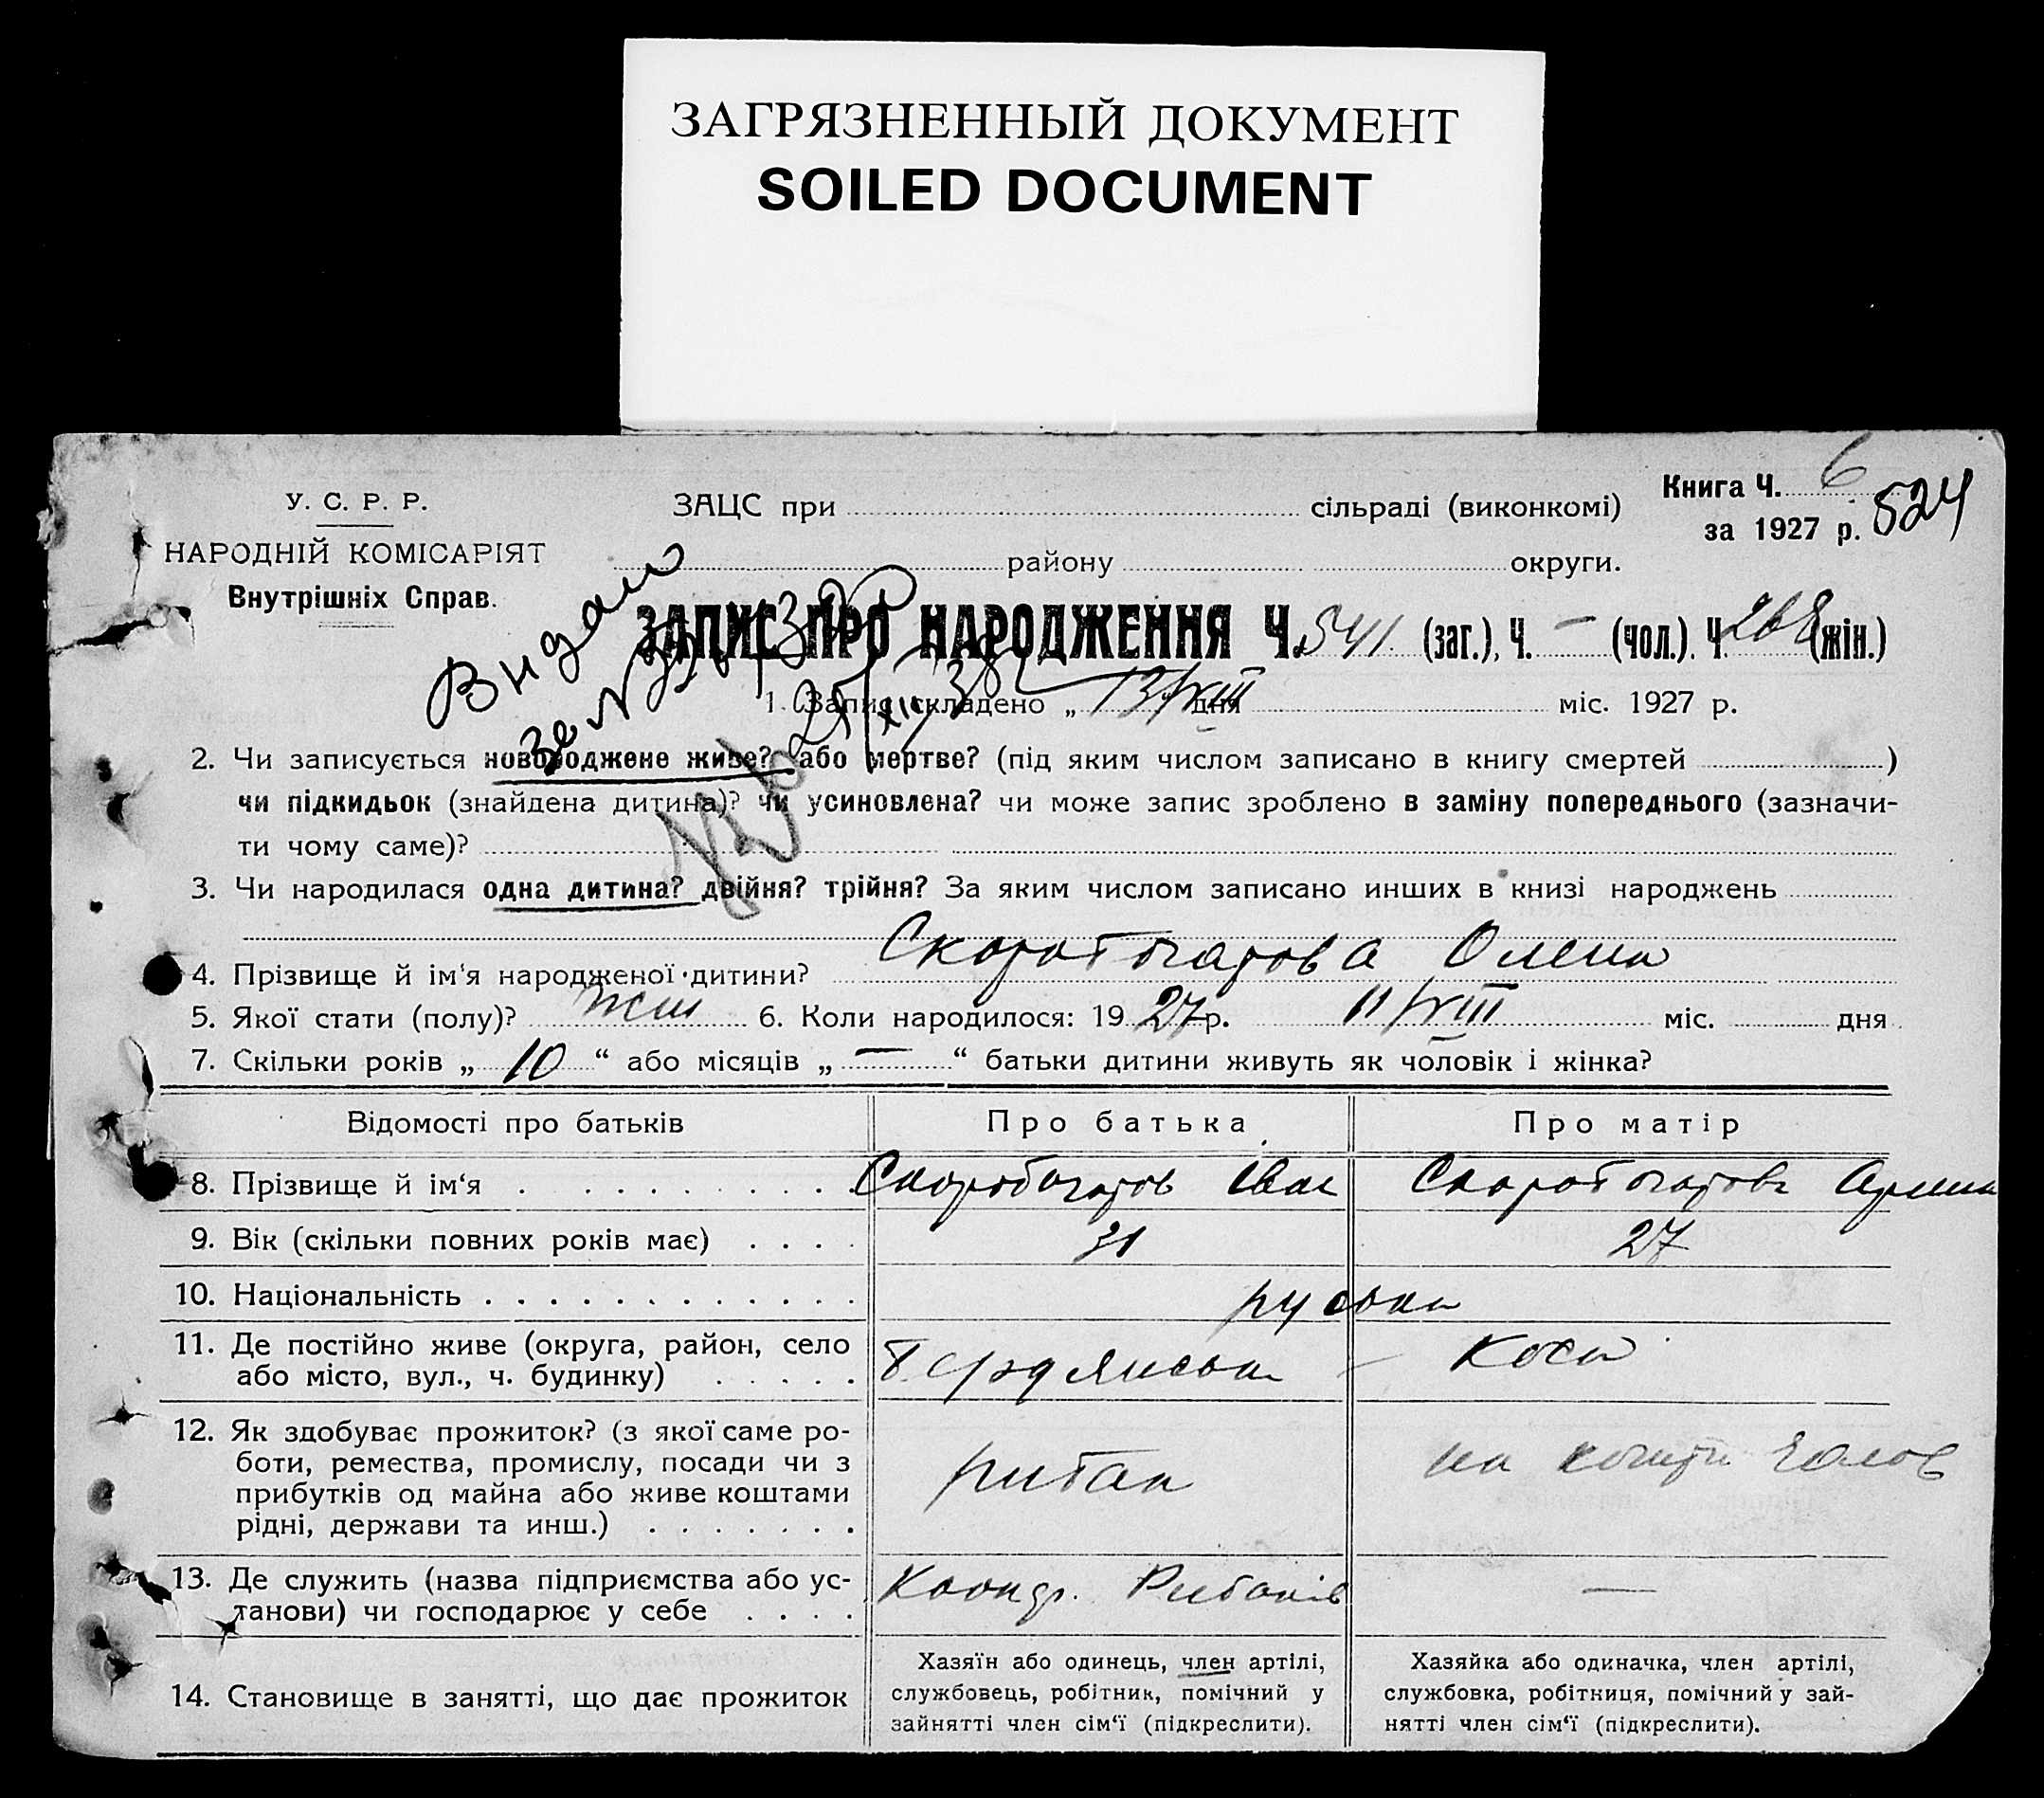 ЗАГРЯЗНЕННЫЙ ДОКУМЕНТ
SOILED DOCUMENT
Книга Ч. 6
за 1927 р. 524
У. С. Р. Р.
НАРОДНІЙ КОМІСАРІЯТ
Внутрішніх Справ.
ЗАЦС при сільраді (виконкомі)
району округи.
Видано
ЗАПИС ПРО НАРОДЖЕННЯ Ч. 541 (заг.), Ч. — (чол.). Ч. 268 (жін.)
1. Запис складено „ 13/VIII дня міс. 1927 р.
2. Чи записується новороджене живе? або мертве? (під яким числом записано в книгу смертей )
чи підкидьок (знайдена дитина)? чи усиновлена? чи може запис зроблено в заміну попереднього (зазначи-
ти чому саме)?
3. Чи народилася одна дитина? двійня? трійня? За яким числом записано инших в книзі народжень
4. Прізвище й ім'я народженої дитини? Скоробогатова Олена
5. Якої стати (полу)? жін 6. Коли народилося: 1927 р. 11/VIII міс. дня
7. Скільки років „ 10 “ або місяців „ — “ батьки дитини живуть як чоловік і жінка?
Відомості про батьків Про батька Про матір
8. Прізвище й ім‘я Скоробогатов Іван Скоробогатова
9. Вік (скільки повних років має) 31 27
10. Національність руська
11. Де постійно живе (округа, район, село
або місто, вул., ч. будинку) Бердянська Коса
12. Як здобуває прожиток? (з якої саме ро-
боти, ремества, промислу, посади чи з
прибутків од майна або живе коштами
рідні, держави та инш.) рибак на кошти чолов
13. Де служить (назва підприємства або ус-
танови) чи господарює у себе Рибаків —
14. Становище в занятті, що дає прожиток
Хазяїн або одинець, член артілі,
службовець, робітник, помічний у
зайнятті член сім‘ї (підкреслити).
Хазяйка або одиначка, член артілі,
службовка, робітниця, помічний у зай-
нятті член сім‘ї (підкреслити).